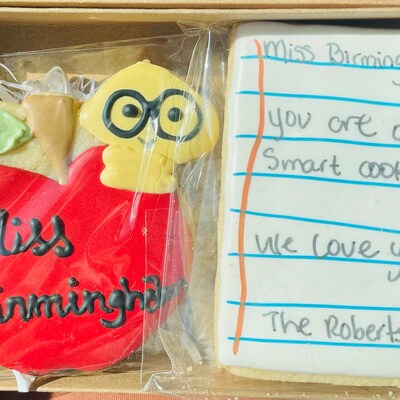 Miss
Birmingham
Miss Birming
you are a
Smart cook
We love y
The Roberts